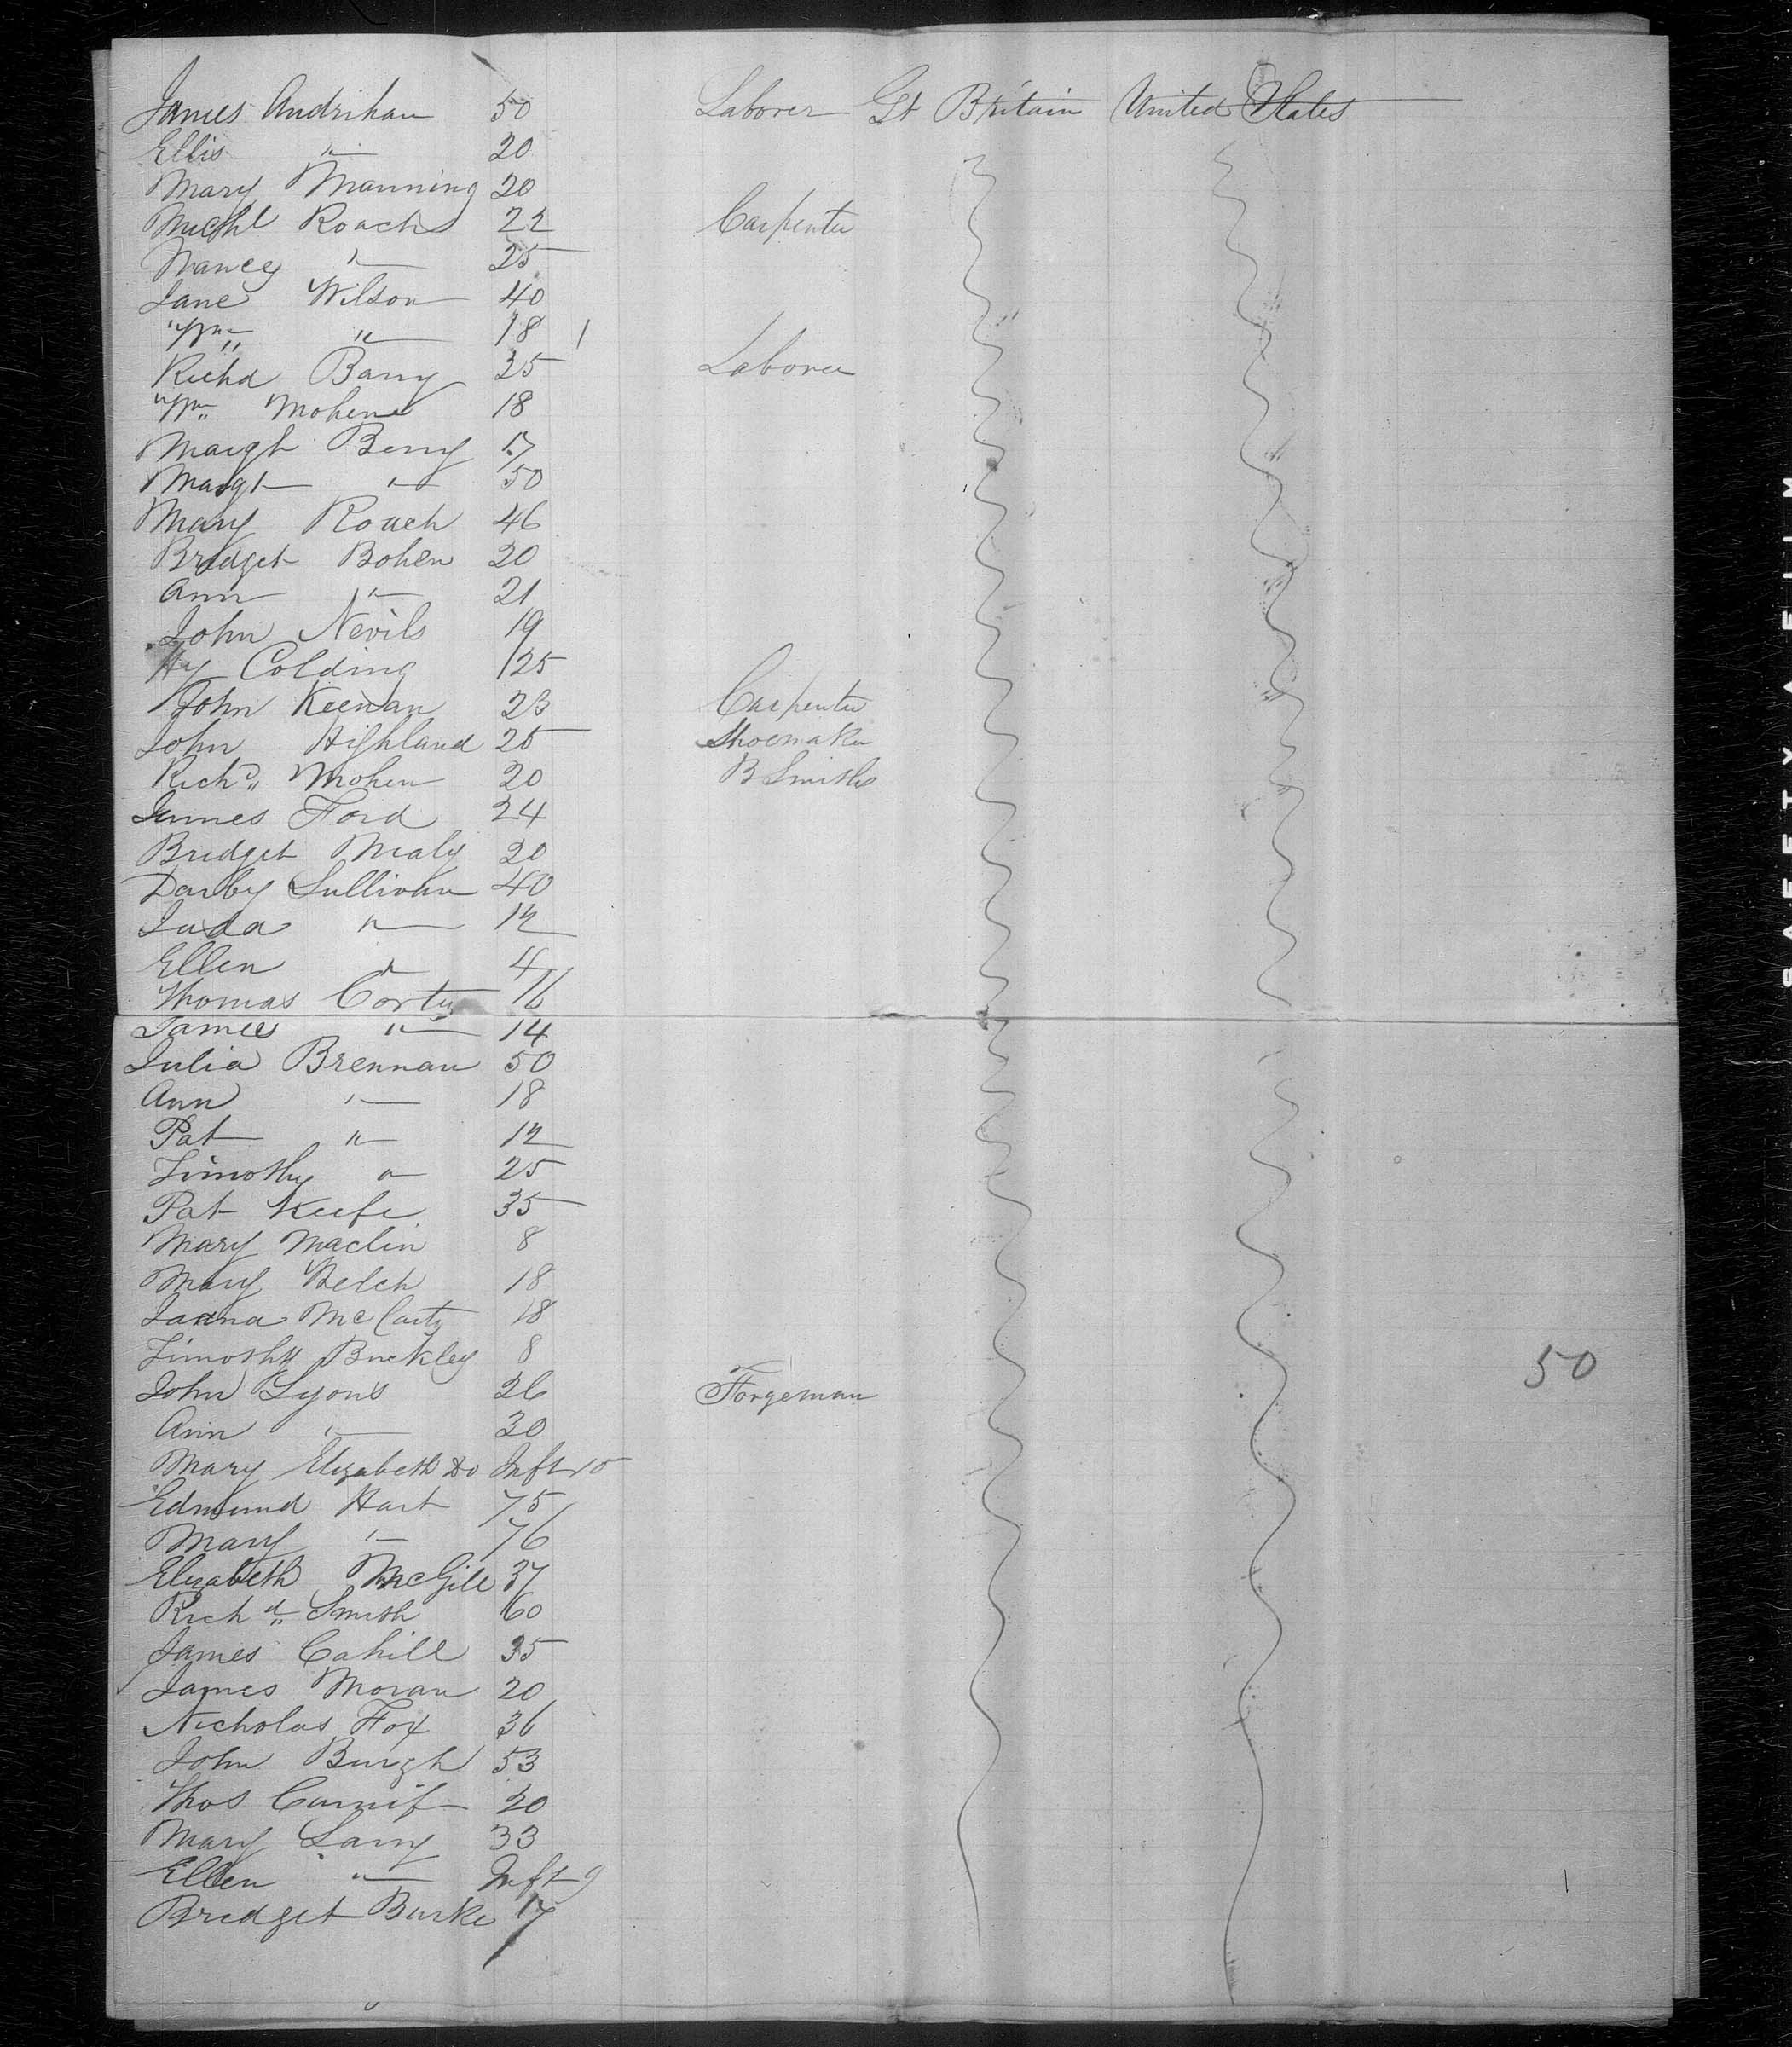 James Andrihan 50 Laborer Gt Britain United States
Ellis " 20
Mary Manning 20
Michl Roach 22 Carpenter
Nancy " 25
Jane Wilson 40
Wm " 18 1
Richd Barry 25 Laborer
Wm Mohen 18
Margt Berry 17
Margt " 50
Mary Roach 46
Bridget Bohen 20
Ann " 21
John Nevils 19
Hy Colding 25
John Keenan 23 Carpenter
John Highland 25 Shoemaker
Richd Mohen 20 B Smith
James Ford 24
Bridget Mealy 20
Darby Sullivan 40
Juda " 12
Ellen " 4
Thomas Corty 16
James " 14
Julia Brennan 50
Ann " 18
Pat " 12
Timothy " 25
Pat Keefe 35
Mary Maclin 8
Mary Belch 18
Janna McCarty 18
Timothy Buckley 8
50
John Lyons 26 Forgeman
Ann " 30
Mary Elizabeth Do Inft 10
Edmund Hart 75
Mary " 76
Elizabeth McGill 37
Richd Smith 60
James Cahill 35
James Moran 20
Nicholas Fox 36
John Burgh 53
Thos 20
Mary Larry 33
Ellen " Inft 9
Bridget Burke 17
SAFETY FILM